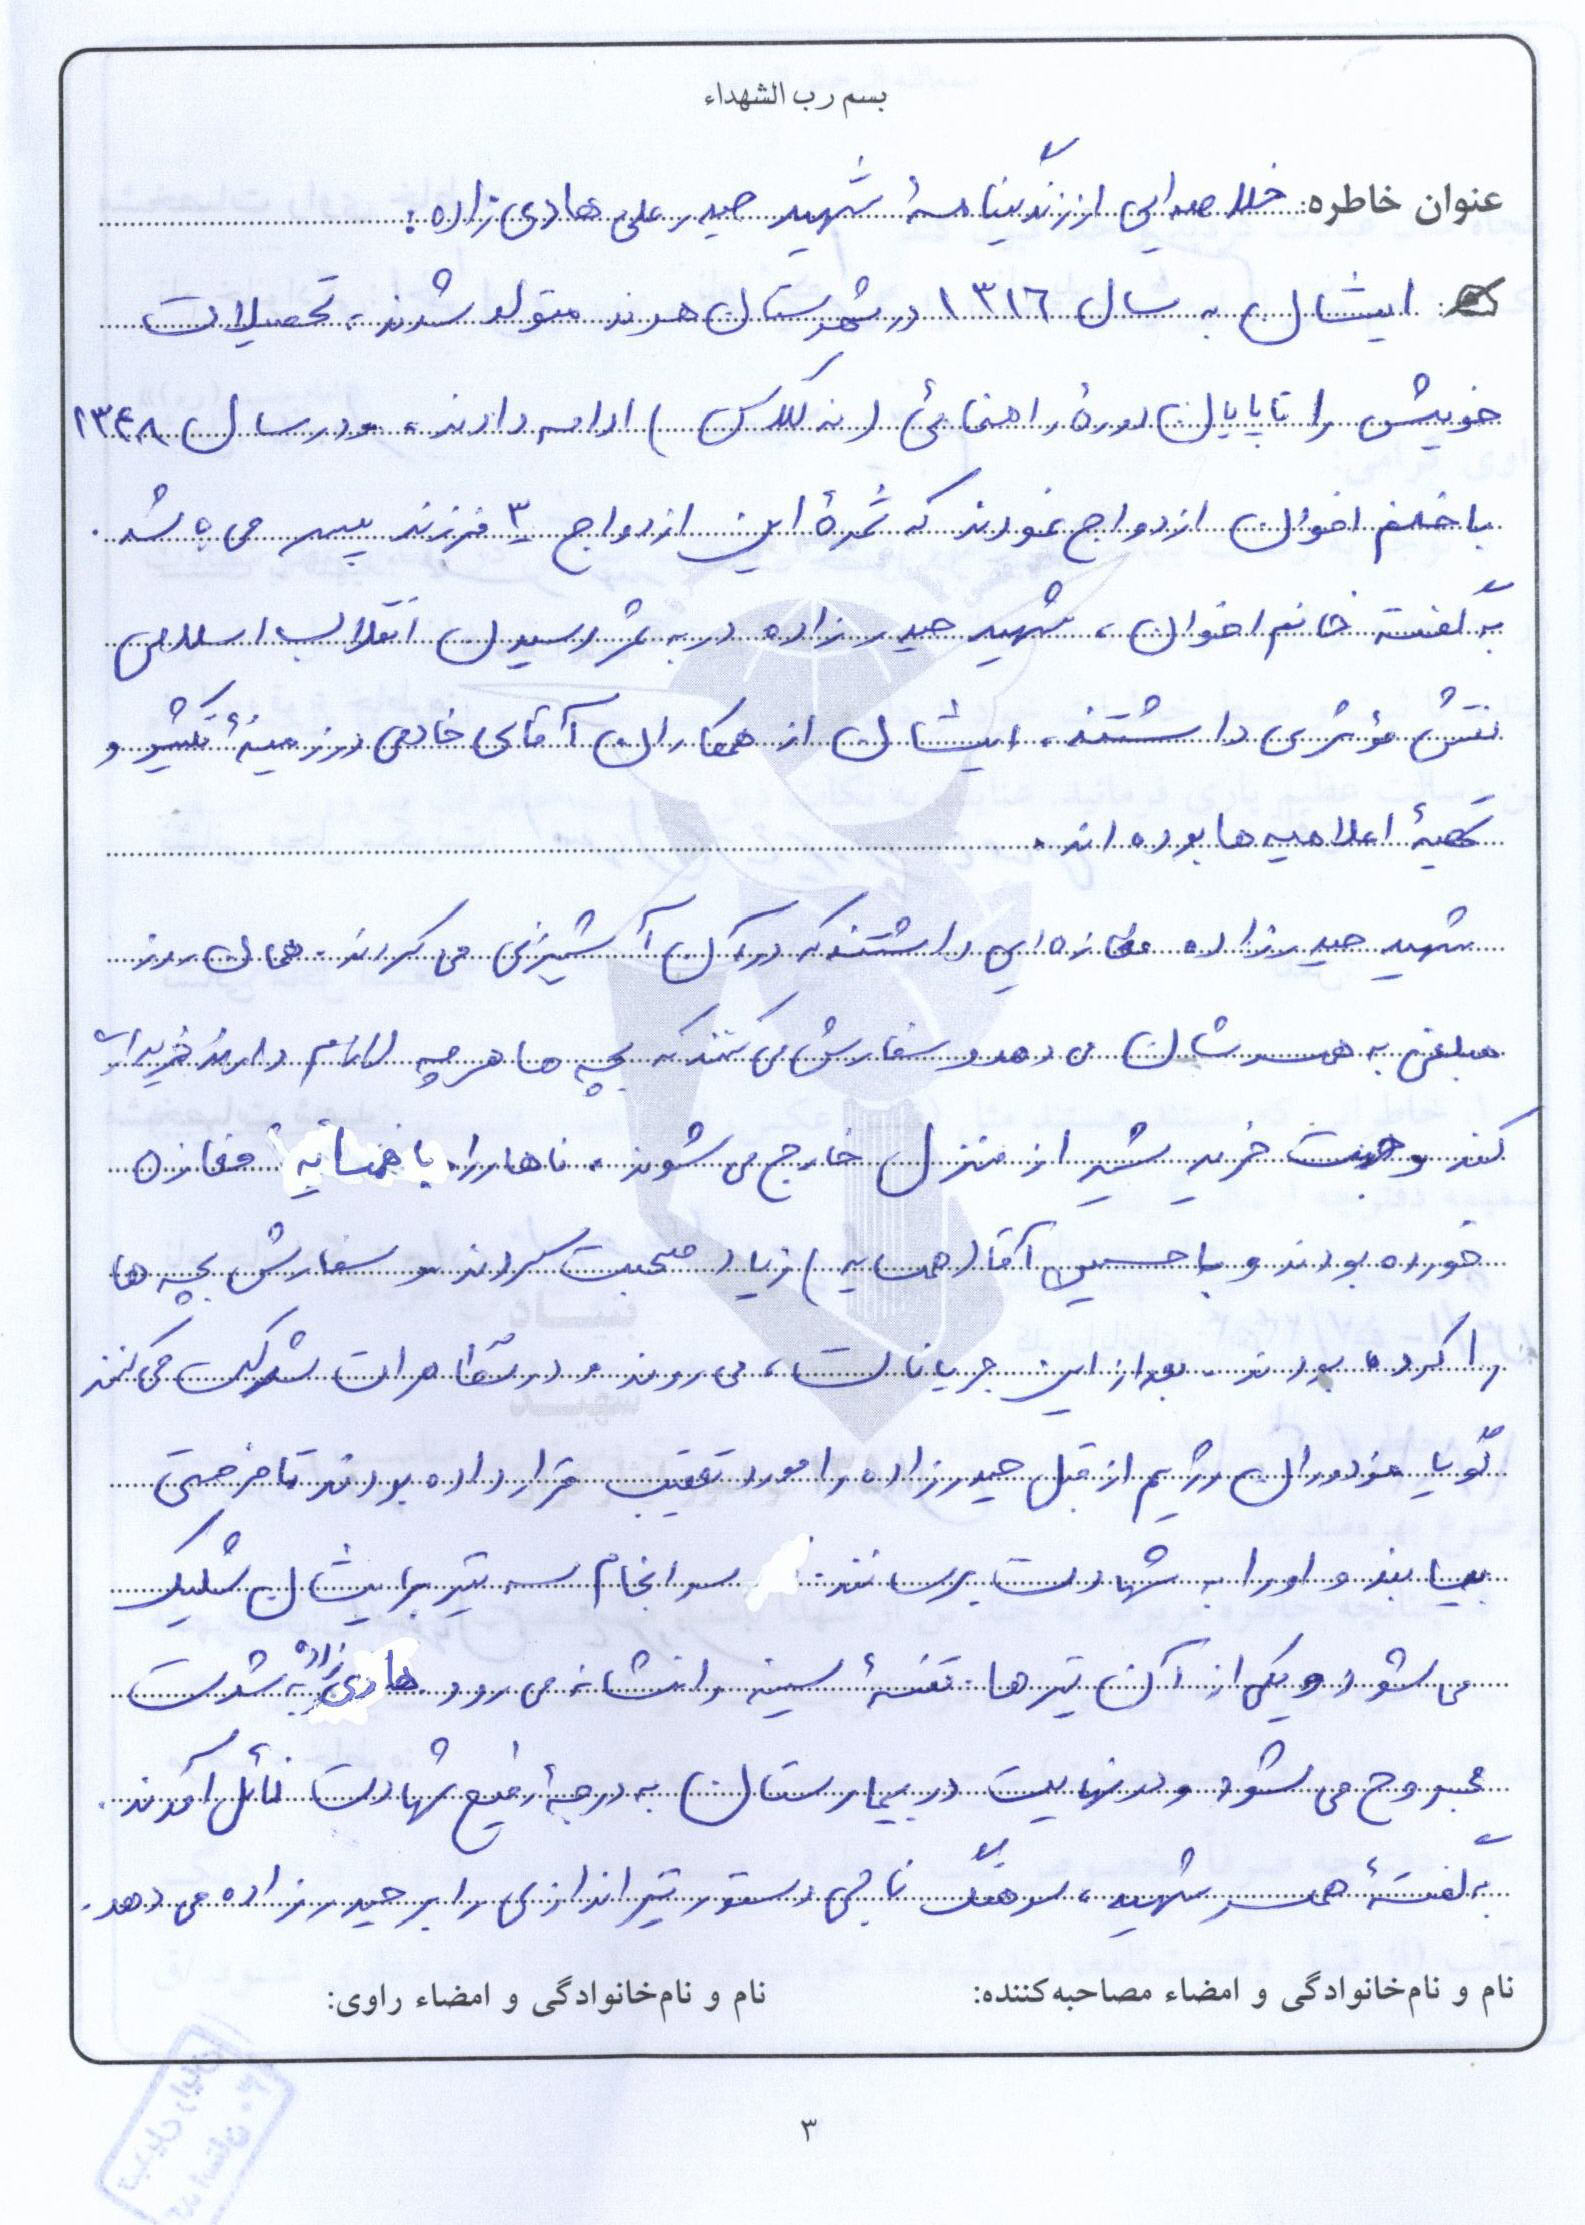 بسم رب الشهداء
عنوان خاطره: خلاصه‌ایی از زندگینامهٔ شهید حیدر علی هادی زاده:
ایشان به سال ۱۳۱۶ در شهرستان مرند متولد شدند، تحصیلات
خویش را تا پایان دورهٔ راهنمائی (نه کلاس) ادامه دادند، و در سال ۱۳۴۸
با خانم اخوان ازدواج نمودند که ثمرهٔ این ازدواج ۳ فرزند پسر می باشد.
به گفتهٔ خانم اخوان، شهید حیدرزاده در به ثمر رسیدن انقلاب اسلامی
نقش مؤثری داشتند، ایشان از همکاران آقای خادمی در زمینهٔ تکثیر و
تهیهٔ اعلامیه ها بوده اند.
شهید حیدرزاده مغازه ایی داشتند که در آن آشپزی می کردند. همان روز
مبلغی به همسرشان می دهد و سفارش می کنند که بچه ها هر چه لازم دارند خریداری
کند و جهت خرید شیر از منزل خارج می شوند، ناهار را با همسایه مغازه
خورده بودند و با حسین آقا (همسایه) زیاد صحبت کردند و سفارش بچه ها
را کرده بودند. بعد از این جریانات، می روند و در تظاهرات شرکت می کنند
گویا مزدوران رژیم از قبل حیدرزاده را مورد تعقیب قرار داده بودند تا فرصتی
بیابند و او را به شهادت برسانند. سرانجام سه تیر بر ایشان شلیک
می شود و یکی از آن تیرها قفسهٔ سینه را نشانه می رود. هادی زاده به شدت
مجروح می شود و در نهایت در بیمارستان به درجهٔ رفیع شهادت نائل آمدند.
به گفتهٔ همسر شهید، سرهنگ دستور تیراندازی را بر حیدرزاده می دهد.
نام و نام‌خانوادگی و امضاء مصاحبه‌کننده:
نام و نام‌خانوادگی و امضاء راوی:
۳